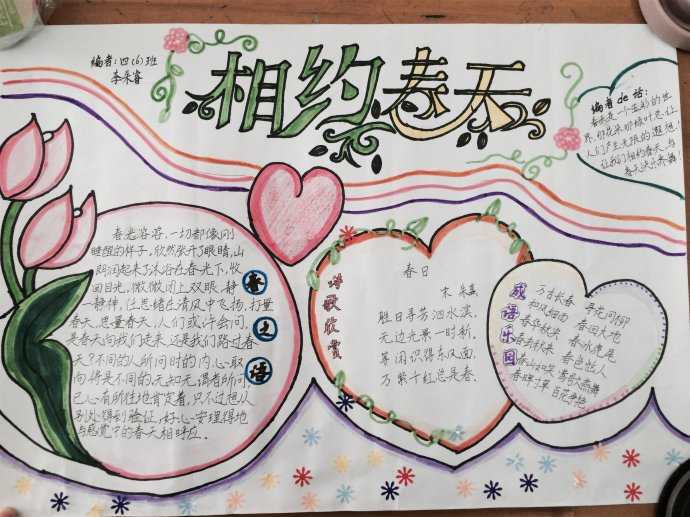 编者:四(6)班
李朱睿
相约春天
编者de话:
春天是一个多彩的世
人们产生无限的遐想!
让我们相约春天,与
春天快乐奔舞!
春之语
春光容容,一切都像刚
睡醒的样子,欣然张开了眼睛,山
朗润起来了沐浴在春光下,收
回目光,微微闭上双眼,静
一静神,任思绪在清风中飞扬,打量
春天,思量春天,人们或许会问,
是春天向我们走来,还是我们踏过春
天?不同的人所问时的内心取
向,将是不同的,无知无谓者所问,
己心有所性地肯定着,只不过想从
别处得到验证,好心安理得地
与感觉中的春天相呼应。
诗歌欣赏
春日
宋 朱熹
胜日寻芳泗水滨,
无边光景一时新。
等闲识得东风面,
万紫千红总是春。
成语乐园
万古长春 寻花问柳
和风细雨 春回大地
春华秋实 春水虎尾
春去秋来 春色恼人
春山如笑 莺歌燕舞
春晖寸草 百花争艳